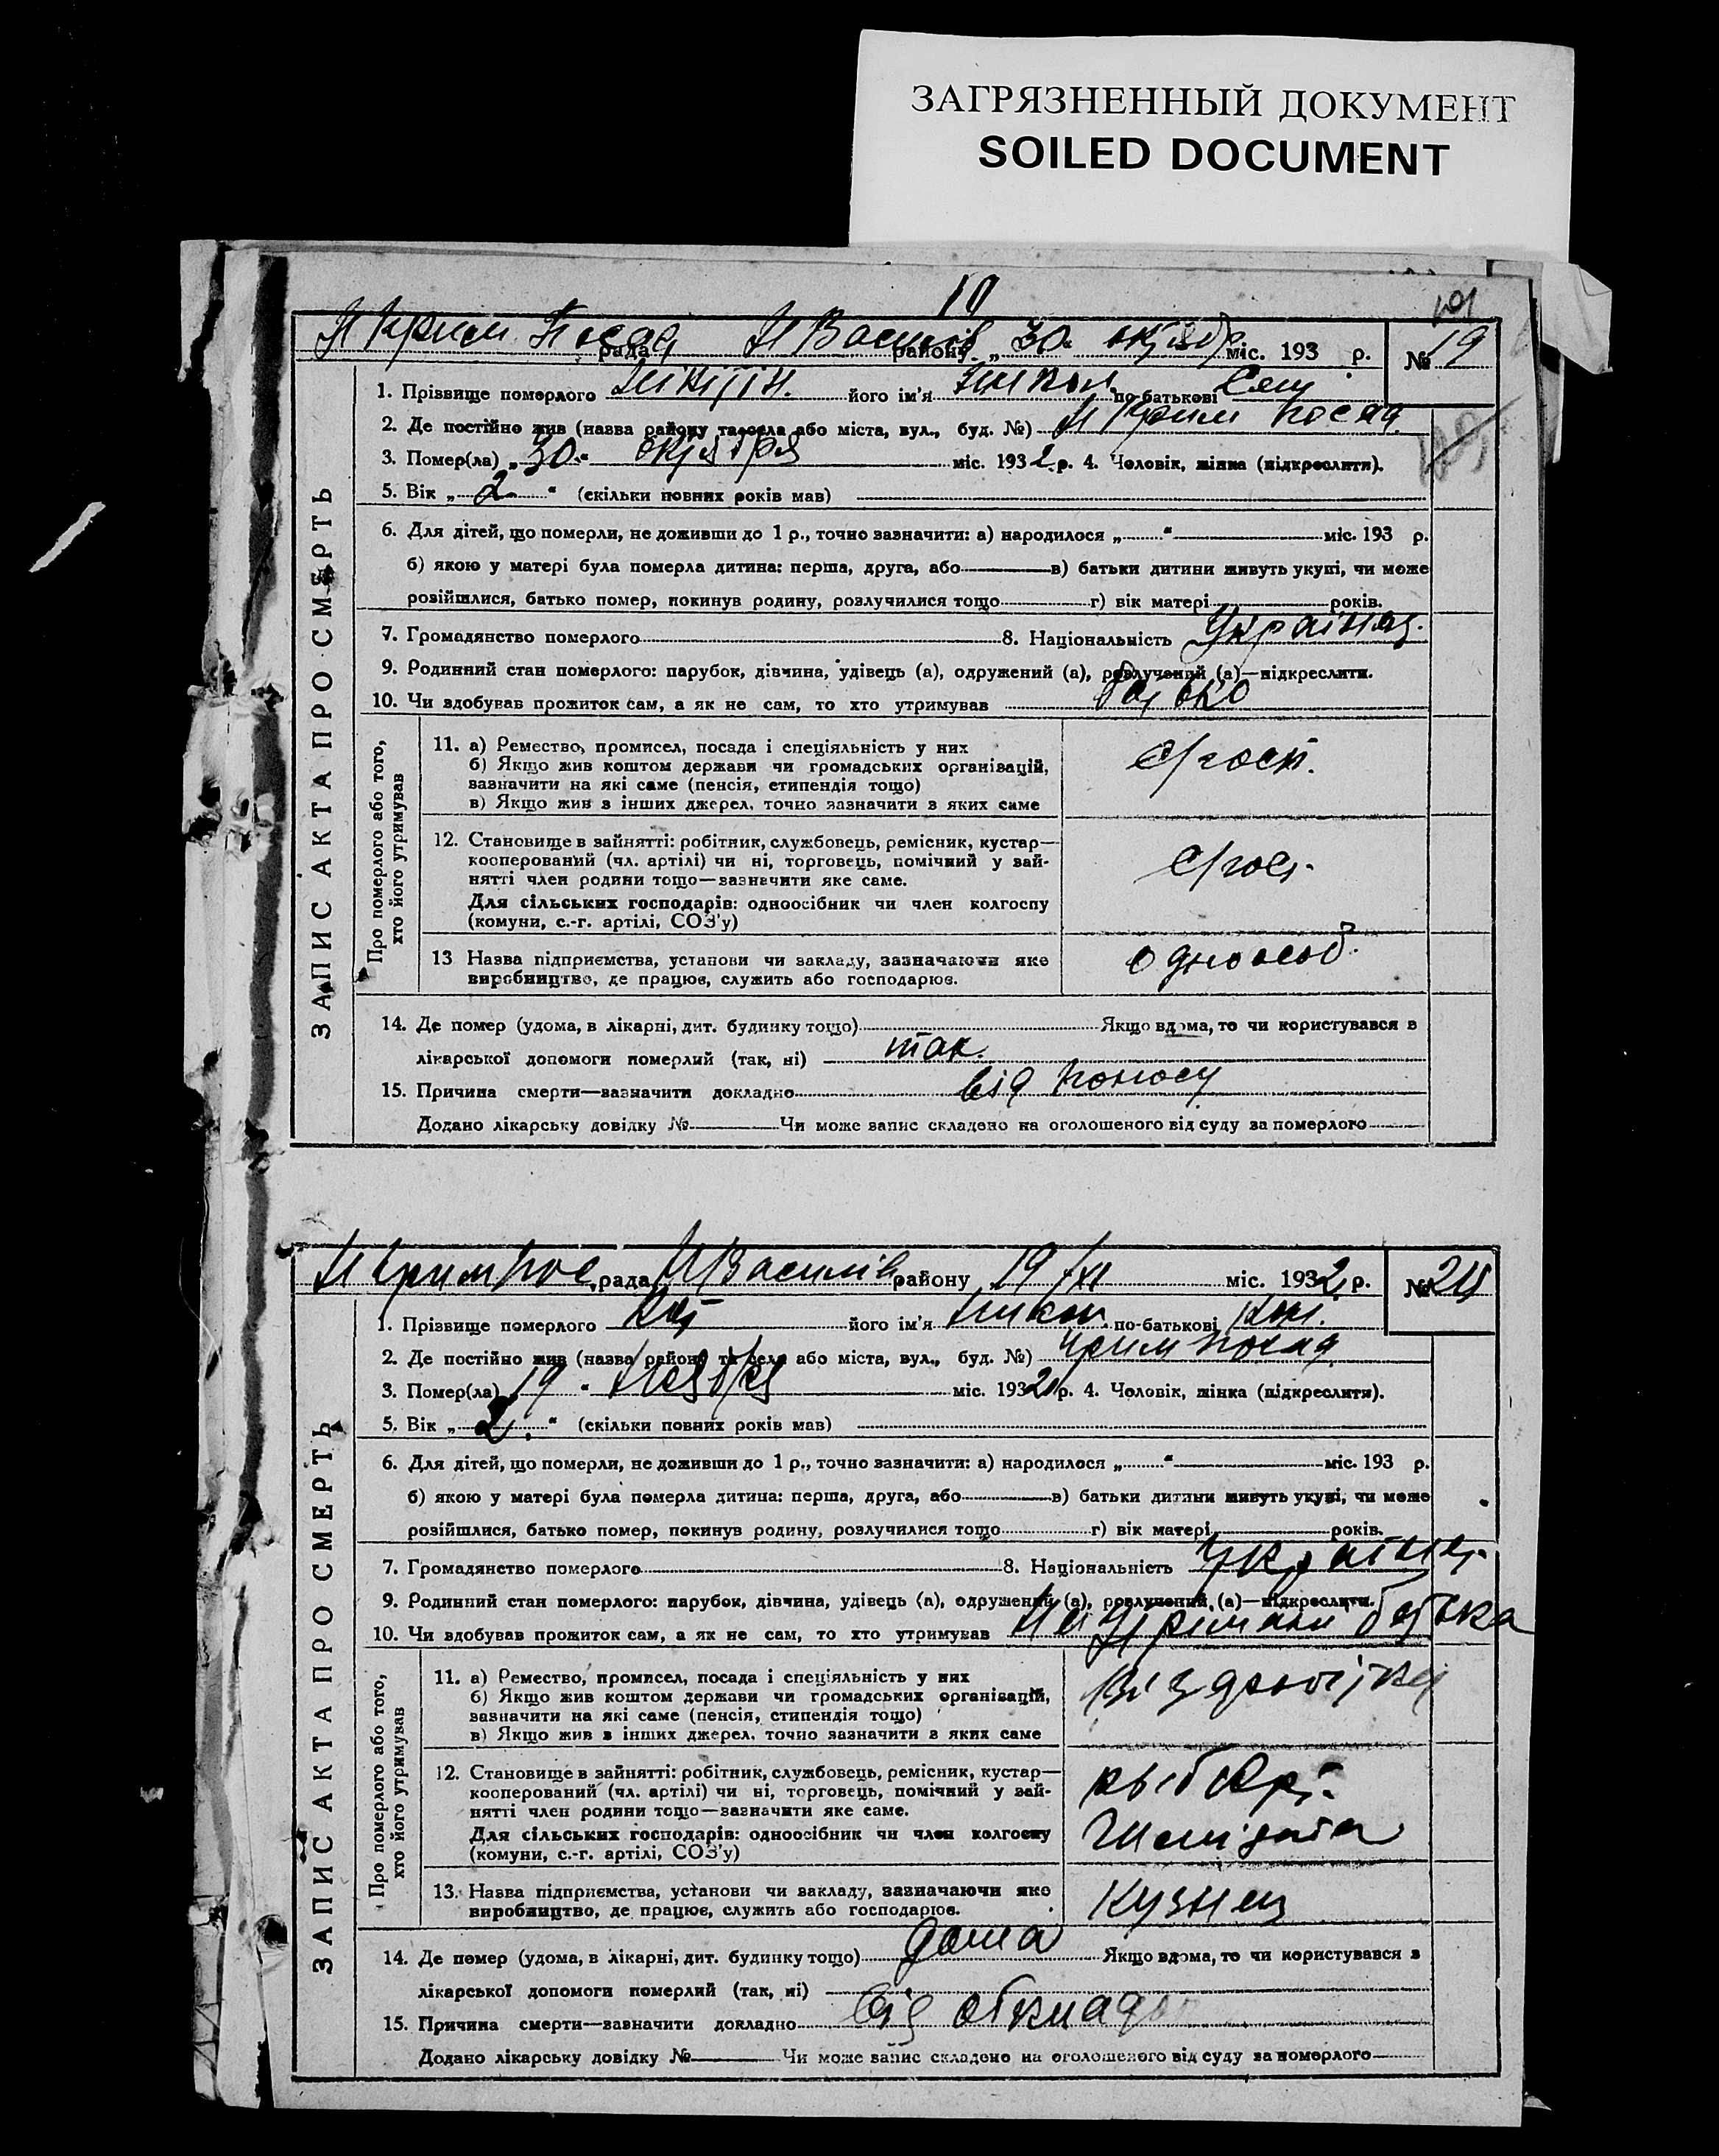 ЗАГРЯЗНЕННЫЙ ДОКУМЕНТ
SOILED DOCUMENT
10
101
рада району „ 30 міс. 193 р. № 19
ЗАПИС АКТА ПРО СМЕРТЬ
1. Прізвище померлого його ім'я по-батькові
2. Де постійно жив (назва району та села або міста, вул., буд. №) посад
3. Помер(ла) „ 30 “ октября міс. 1932 р. 4. Чоловік, жінка (підкреслити).
5. Вік „ 2 “ (скільки повних років мав)
6. Для дітей, що померли, не доживши до 1 р., точно зазначити: а) народилося „ “ міс. 193 р.
б) якою у матері була померла дитина: перша, друга, або в) батьки дитини живуть укупі, чи може
розійшлися, батько помер, покинув родину, розлучилися тощо г) вік матері років.
7. Громадянство померлого 8. Національність
9. Родинний стан померлого: парубок, дівчина, удівець (а), одружений (а), розлучений (а)—підкреслити.
10. Чи здобував прожиток сам, а як не сам, то хто утримував батько
Про померлого або того,
хто його утримував
11. а) Ремество, промисел, посада і спеціяльність у них
б) Якщо жив коштом держави чи громадських організацій,
зазначити на які саме (пенсія, стипендія тощо)
в) Якщо жив з інших джерел, точно зазначити з яких саме
12. Становище в зайнятті: робітник, службовець, ремісник, кустар—
кооперований (чл. артілі) чи ні, торговець, помічний у зай-
нятті член родини тощо—зазначити яке саме.
Для сільських господарів: одноосібник чи член колгоспу
(комуни, с.-г. артілі, СОЗ'у)
13 Назва підприємства, установи чи закладу, зазначаючи яке
виробництво, де працює, служить або господарює.
одноособ.
14. Де помер (удома, в лікарні, дит. будинку тощо) Якщо вдома, то чи користувався з
лікарської допомоги померлий (так, ні) так.
15. Причина смерти—зазначити докладно від поносу
Додано лікарську довідку № Чи може запис складено на оголошеного від суду за померлого
рада району 19/XI міс. 1932 р. №
ЗАПИС АКТА ПРО СМЕРТЬ
1. Прізвище померлого його ім'я по-батькові
2. Де постійно жив (назва району та села або міста, вул., буд. №) посад
3. Помер(ла) 19 “ Ноября міс. 1932 р. 4. Чоловік, жінка (підкреслити).
5. Вік „ 2. “ (скільки повних років мав)
6. Для дітей, що померли, не доживши до 1 р., точно зазначити: а) народилося „ “ міс. 193 р.
б) якою у матері була померла дитина: перша, друга, або в) батьки дитини живуть укупі, чи може
розійшлися, батько помер, покинув родину, розлучилися тощо г) вік матері років.
7. Громадянство померлого 8. Національність
9. Родинний стан померлого: парубок, дівчина, удівець (а), одружений (а), розлучений (а)—підкреслити.
10. Чи здобував прожиток сам, а як не сам, то хто утримував На батька
Про померлого або того,
хто його утримував
11. а) Ремество, промисел, посада і спеціяльність у них
б) Якщо жив коштом держави чи громадських організацій,
зазначити на які саме (пенсія, стипендія тощо)
в) Якщо жив з інших джерел, точно зазначити з яких саме
12. Становище в зайнятті: робітник, службовець, ремісник, кустар—
кооперований (чл. артілі) чи ні, торговець, помічний у зай-
нятті член родини тощо—зазначити яке саме.
Для сільських господарів: одноосібник чи член колгоспу
(комуни, с.-г. артілі, СОЗ'у)
13. Назва підприємства, установи чи закладу, зазначаючи яке
виробництво, де працює, служить або господарює.
Кузнец
14. Де помер (удома, в лікарні, дит. будинку тощо) дома Якщо вдома, то чи користувався з
лікарської допомоги померлий (так, ні)
15. Причина смерти—зазначити докладно від
Додано лікарську довідку № Чи може запис складено на оголошеного від суду за померлого